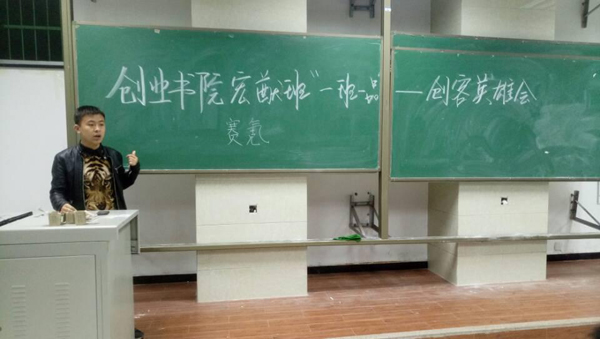 创业书院宏猷班"一班一品——创客英雄会
赛氪